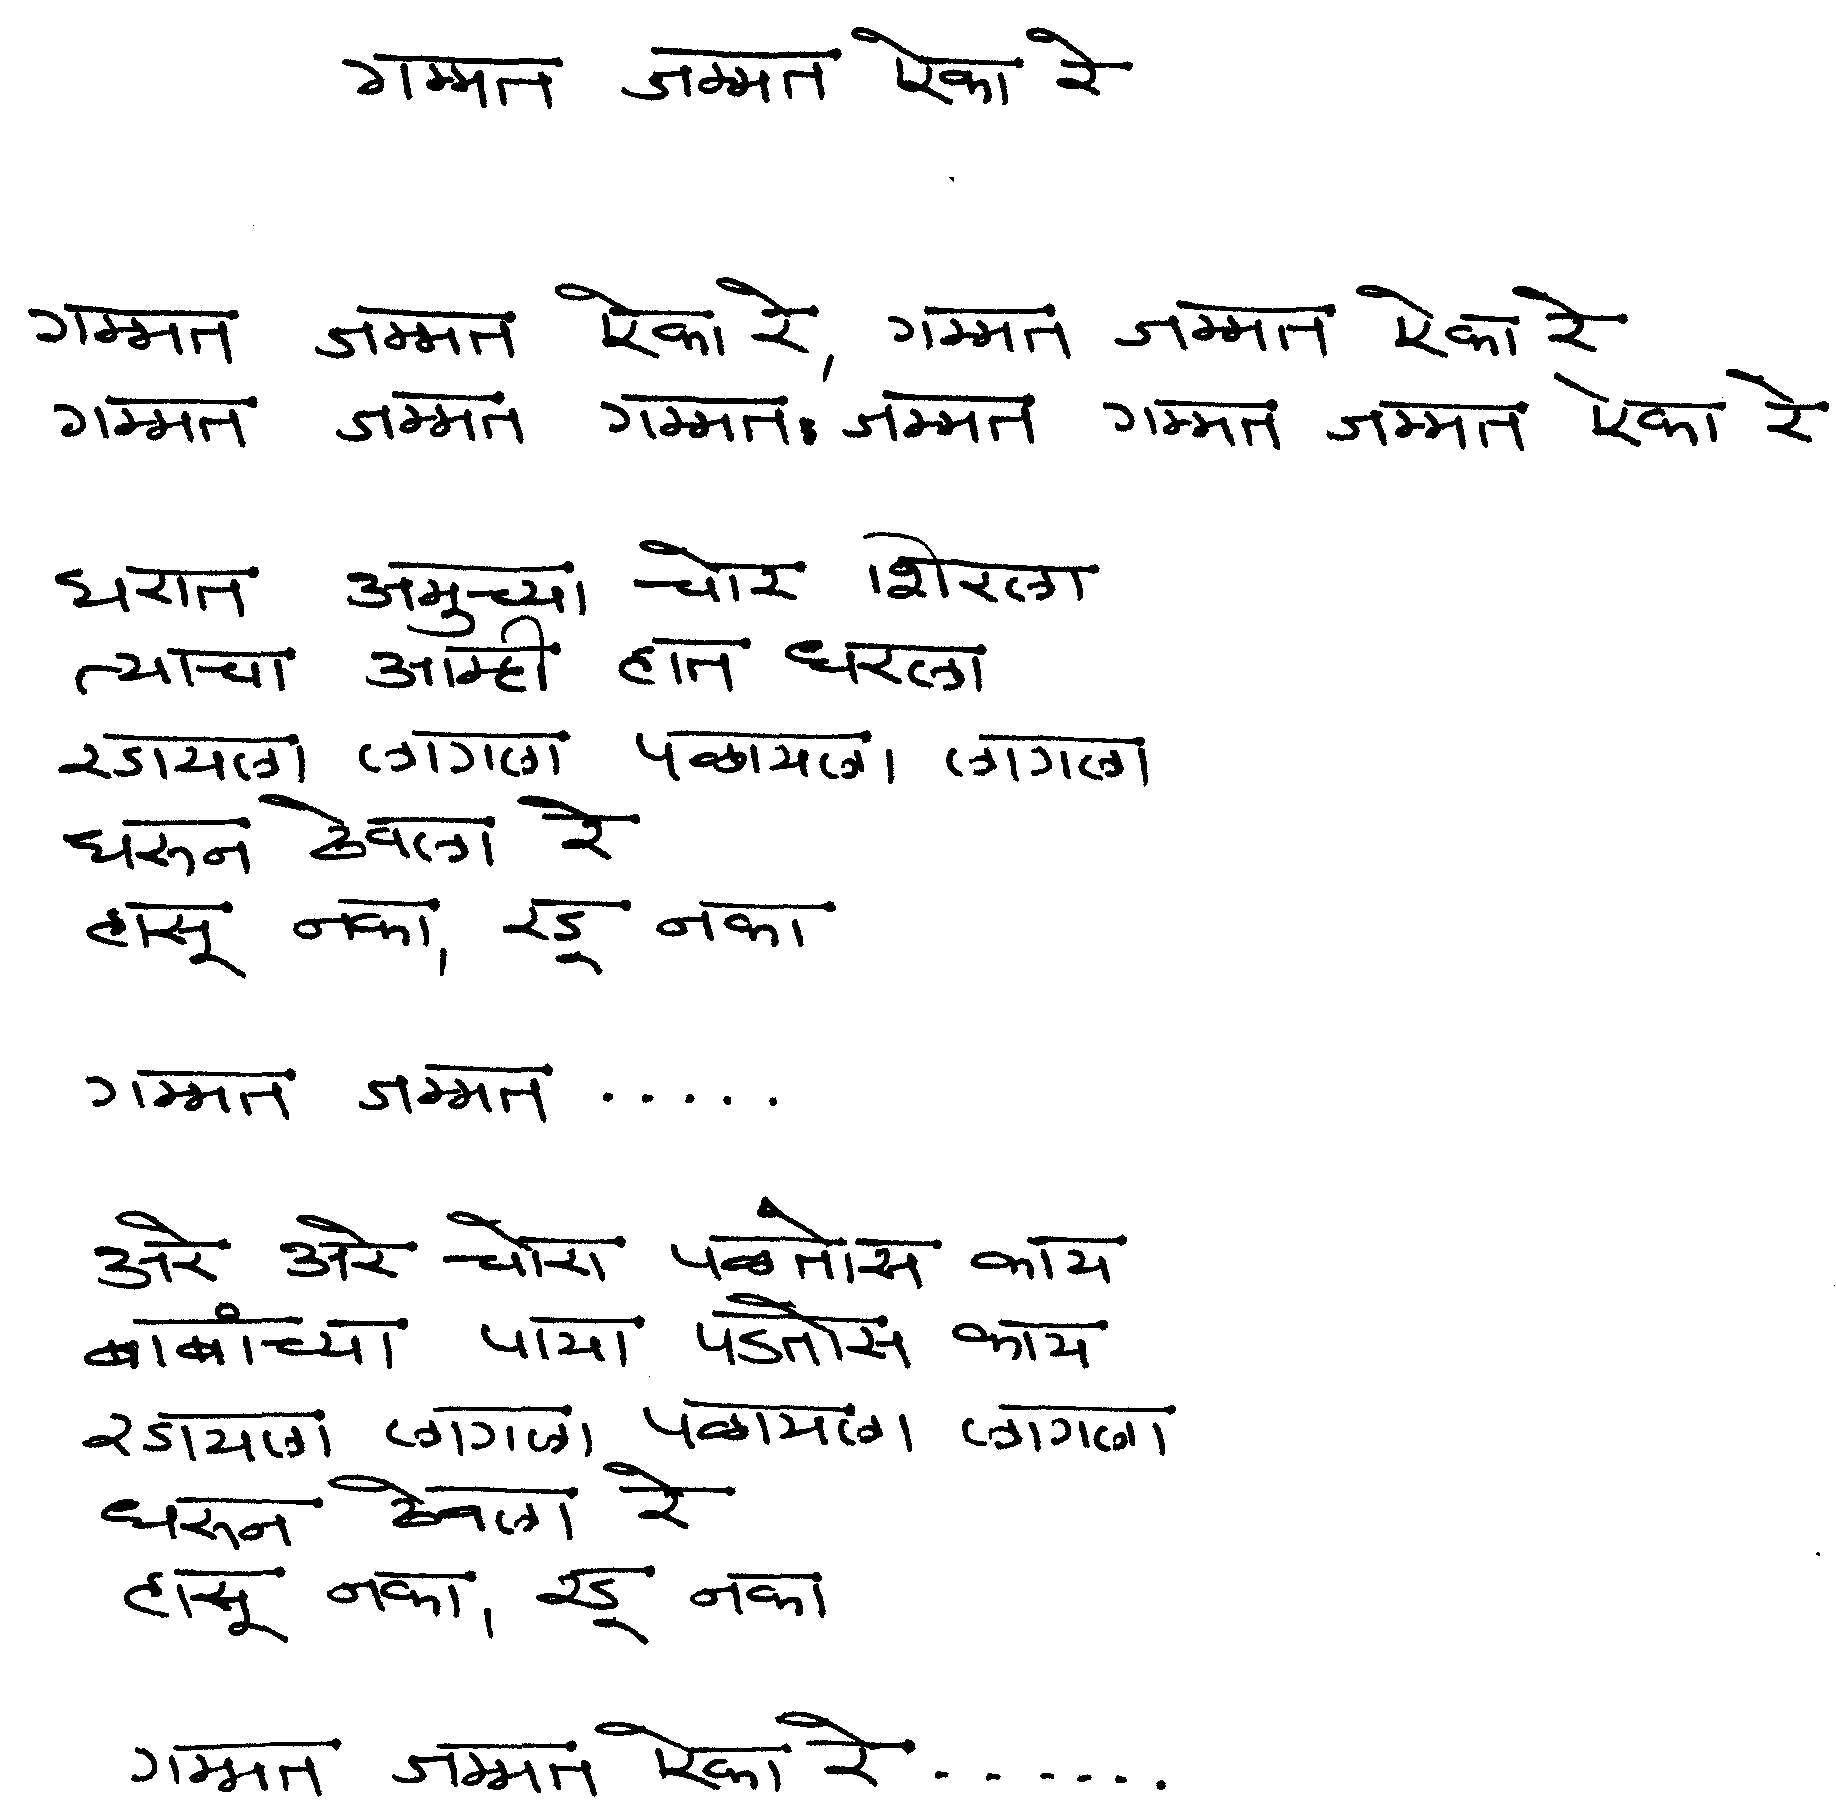 गम्मत जम्मत ऐका रे
गम्मत जम्मत ऐका रे, गम्मत जम्मत ऐका रे
गम्मत जम्मत गम्मत जम्मत गम्मत जम्मत ऐका रे
घरात अमुच्या चोर शिरला
त्याचा आम्ही हात धरला
रडायला लागला पळायला लागला
धरून ठेवला रे
हासू नका, रडू नका
गम्मत जम्मत .....
अरे अरे चोरा पळतोस काय
बाबांच्या पाया पडतोस काय
रडायला लागला पळायला लागला
धरून ठेवला रे
हासू नका, रडू नका
गम्मत जम्मत ऐका रे ......